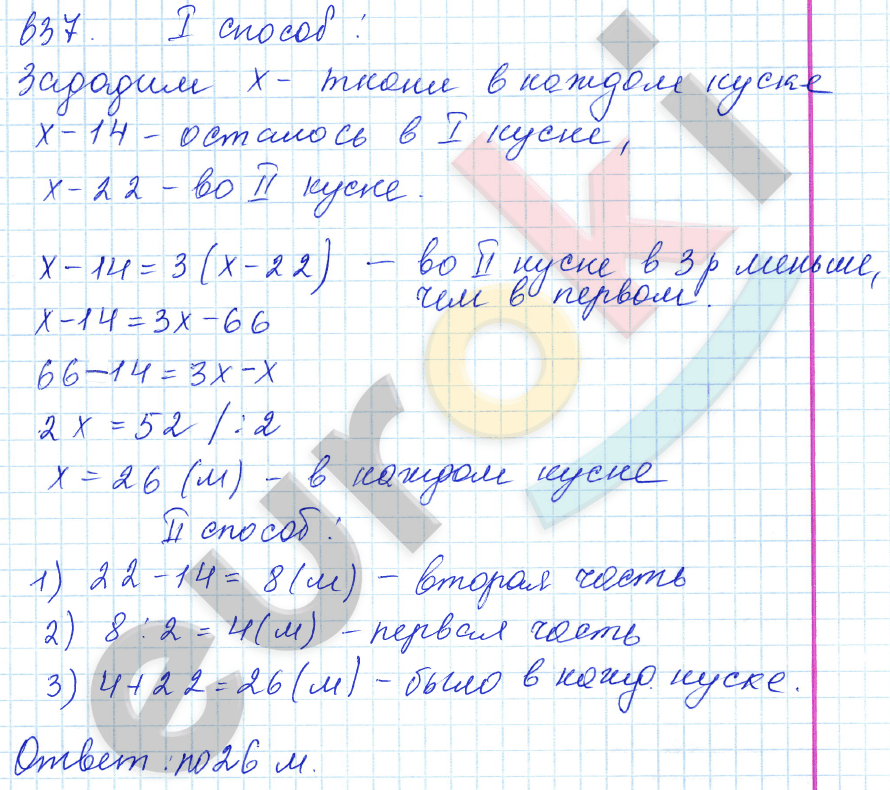 637. I способ:
Зададим x - ткани в каждом куске
x - 14 - осталось в I куске,
x - 22 - во II куске.
x - 14 = 3(x - 22) - во II куске в 3 р меньше,
чем в первом.
x - 14 = 3x - 66
66 - 14 = 3x - x
2x = 52 /:2
x = 26 (м) - в каждом куске
II способ:
1) 22 - 14 = 8(м) - вторая часть
2) 8 : 2 = 4(м) - первая часть
3) 4 + 22 = 26(м) - было в кажд. куске.
Ответ: по 26 м.
euroki